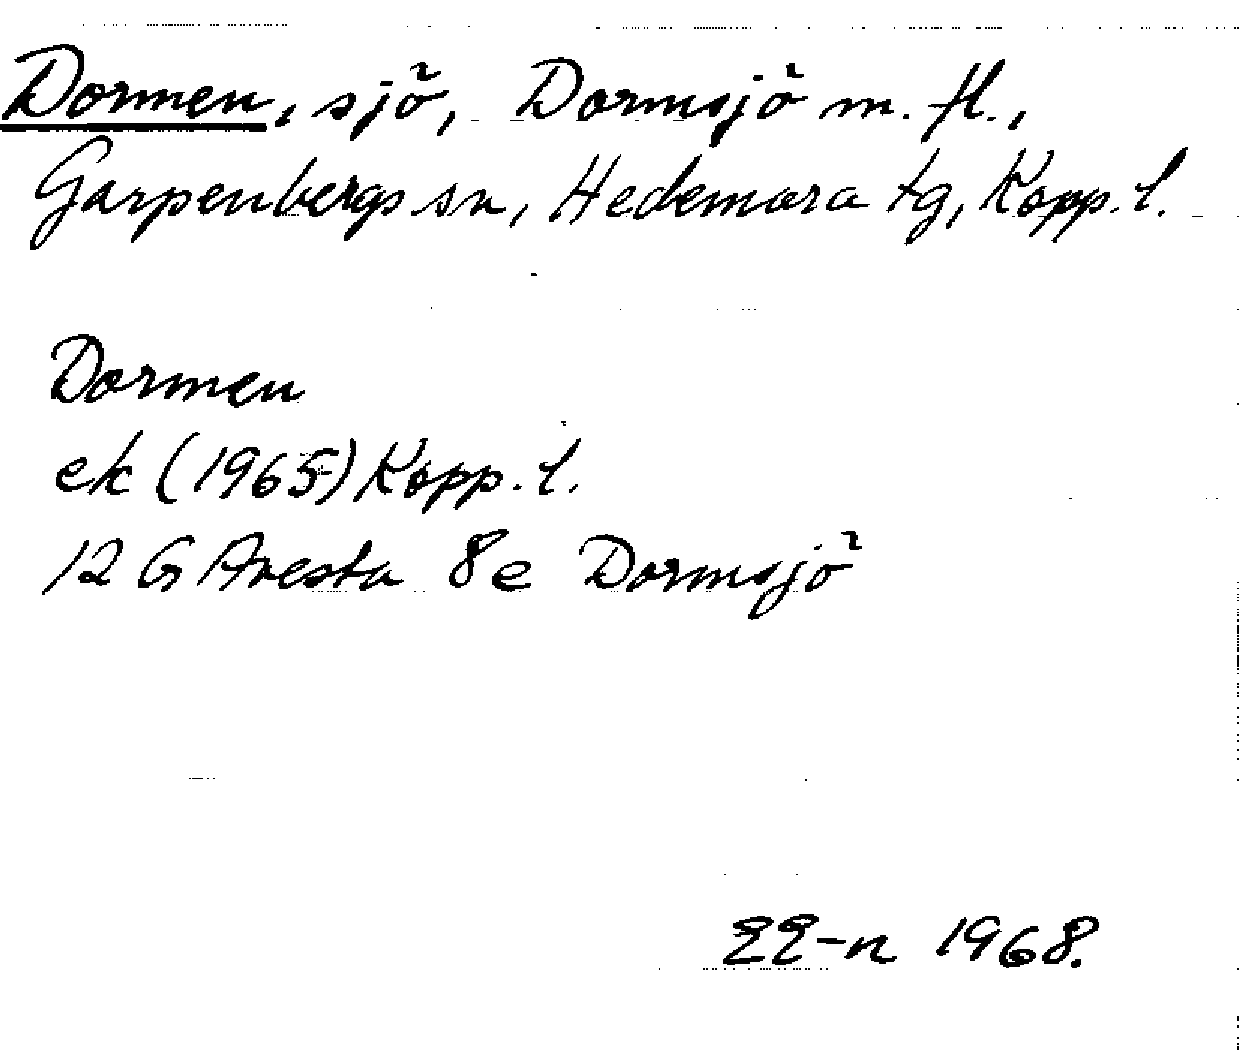 Dormen, sjö, Dormsjö m. fl.,
Garpenbergs sn, Hedemora tg, Kopp. l.
Dormen
ek (1965) Kopp. l.
12 G Avesta 8e Dormsjö
EE-n 1968.